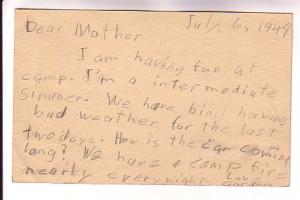 July. 6, 1949
Dear Mother
I am having fun at
camp. I'm a intermediate
simmer. We have bing having
bad weather for the last
two days. How is the car coming
long? We have a camp fire
nearly everynight Love
Gordon